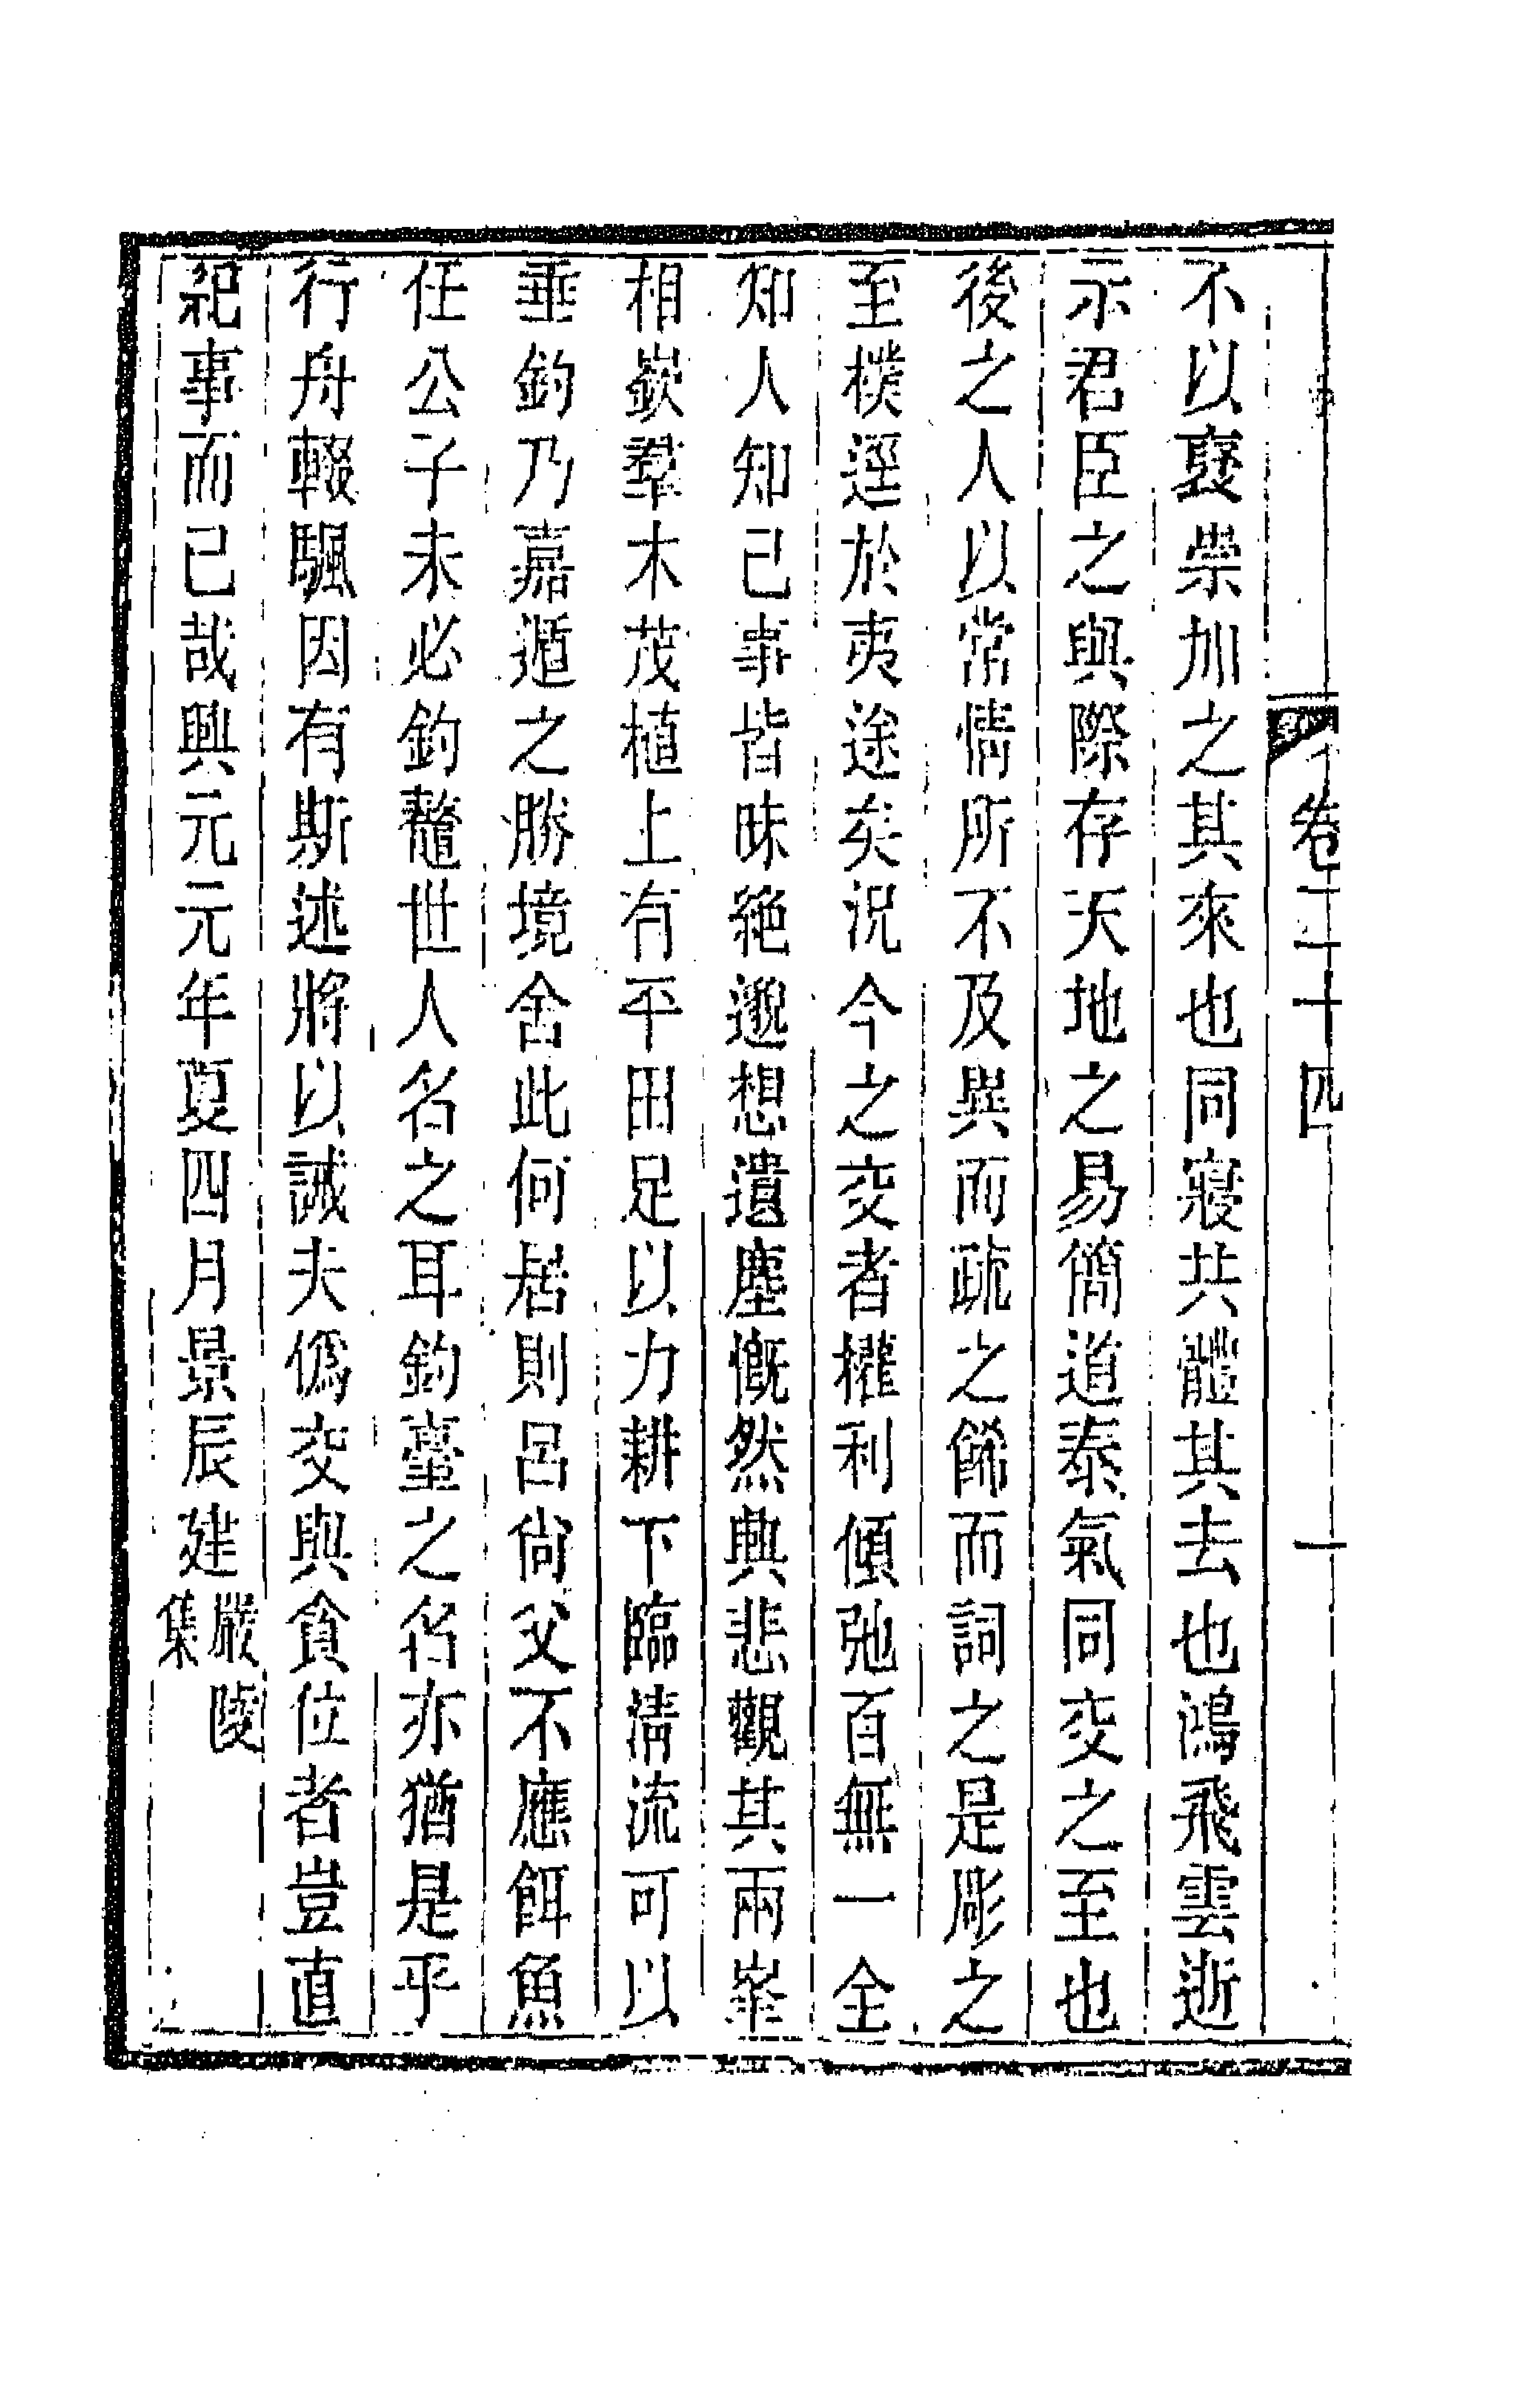 卷二十四
一
不以褒崇加之其來也同寢共體其去也鴻飛雲逝
示君臣之與際存天地之易簡道泰氣同交之至也
後之人以常情所不及異而疏之餙而詞之是彫之
至樸逕於夷途矣況今之交者權利傾弛百無一全
知人知己事皆昧絶邈想遺塵慨然興悲觀其兩峯
相嶔羣木茂植上有平田足以力耕下臨清流可以
垂釣乃嘉遁之勝境舍此何居則呂尙父不應餌魚
任公子未必釣鼇世人名之耳釣臺之名亦猶是乎
行舟輟颿因有斯述將以誡夫僞交與貪位者豈直
紀事而已哉興元元年夏四月景辰建嚴陵集